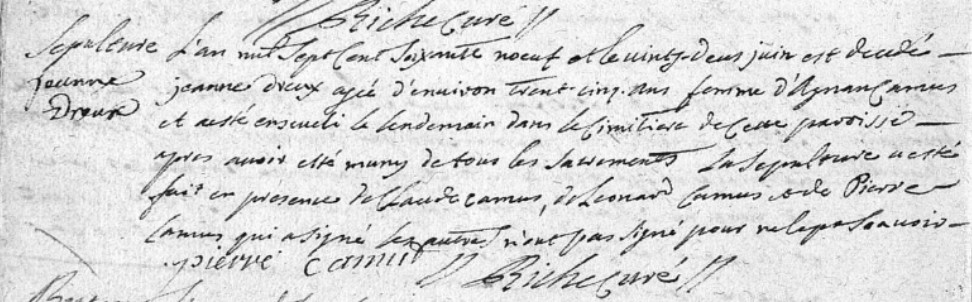 Riche Curé
Sepulture
jeanne
Dreux
L'an mil sept Cent soixante noeuf et le vintz-deus juin est decedé
jeanne dreux agéé d'environ trent-cinq ans femme d'Agnan Camus
et a esté enseveli le lendemain dans le Cimitiere de Cette paroisse
apres avoir esté muny de tous les sacrements La sepulture a esté
fait en presence de Claude camus, de Leonard Camus et de Pierre
Camus qui a signé les autres n'ont pas signé pour ne le pas scavoir
pierre camus
Riche Curé